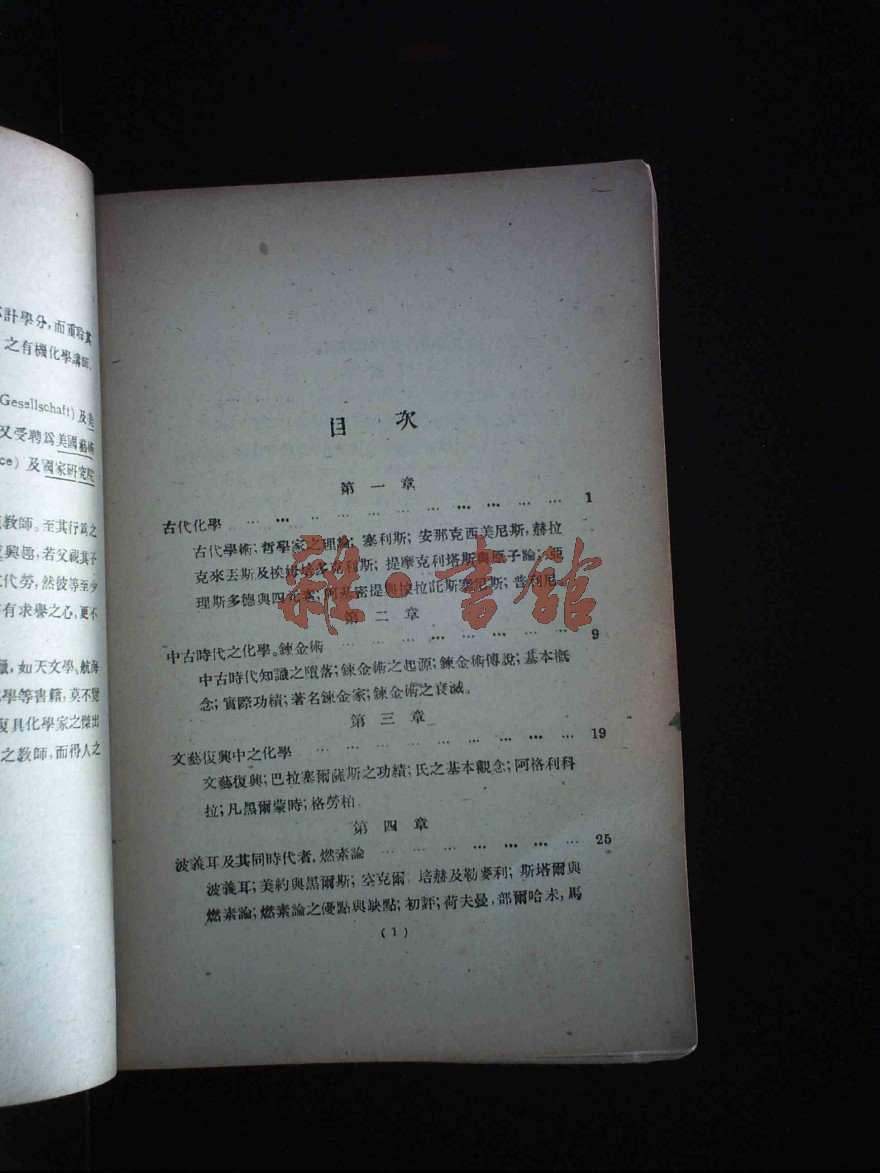 計學分，而重
之有機化學講師、
Gesellschaft) 及
又受聘爲美國藝術
ce) 及國家研究院
教師。至其行爲之
興趣，若父視其子
代勞，然彼等至少
有求譽之心，更不
如天文學。航海
學等書籍，莫不
復具化學家之傑出
之教師，而得人之
目 次
第一章
古代化學 … … … … … … … … … … … … 1
古代學術；哲學家之理論；塞利斯；安那克西美尼斯，赫拉
克來丟斯及埃姆培多克利斯；提摩克利塔斯與原子論；亞
理斯多德與四元素；阿基密提與埃拉託斯塞尼斯；普利尼。
第二章
中古時代之化學。鍊金術 … … … … … … … … 9
中古時代知識之墮落；鍊金術之起源；鍊金術傳說；基本概
念；實際功績；著名鍊金家；鍊金術之衰滅。
第三章
文藝復興中之化學 … … … … … … … … … … 19
文藝復興；巴拉塞爾薩斯之功績；氏之基本觀念；阿格利科
拉；凡黑爾蒙時；格勞柏
第四章
波義耳及其同時代者，燃素論 … … … … … … … … 25
波義耳；美約與黑爾斯；空克爾 培赫及勒麥利；斯塔爾與
燃素論；燃素論之優點與缺點；初評；荷夫曼，部爾哈末，馬
(1)
雜·書館